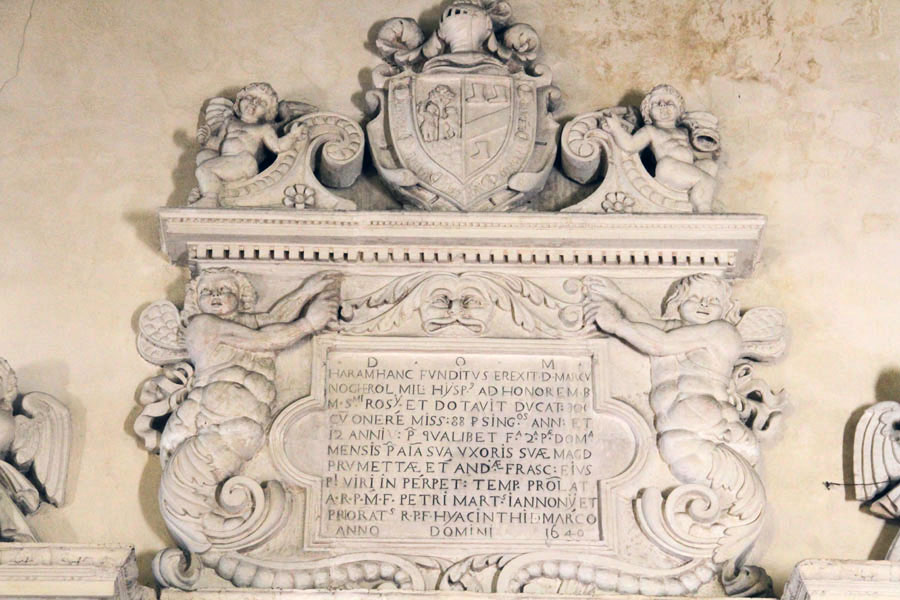 D O M
HARAM HANC FUNDITVS EREXIT D MARCV
MIL: HYSP AD HONOREM B
M ROSY ET DOTAVIT DVCAT:
CV ONERE MISS: 88 P SING ANN: ET
12 P QVALIBET DOM
MENSIS P AIA SVA VXORIS SVÆ MAGD
PRVMETTÆ ET FRASC: EIVS
VIRI IN PERPET: TEMP PROLAT
A R P M F PETRI MART IANNONY ET
PRIORAT R P F HYACINTHI D MARCO
ANNO DOMINI